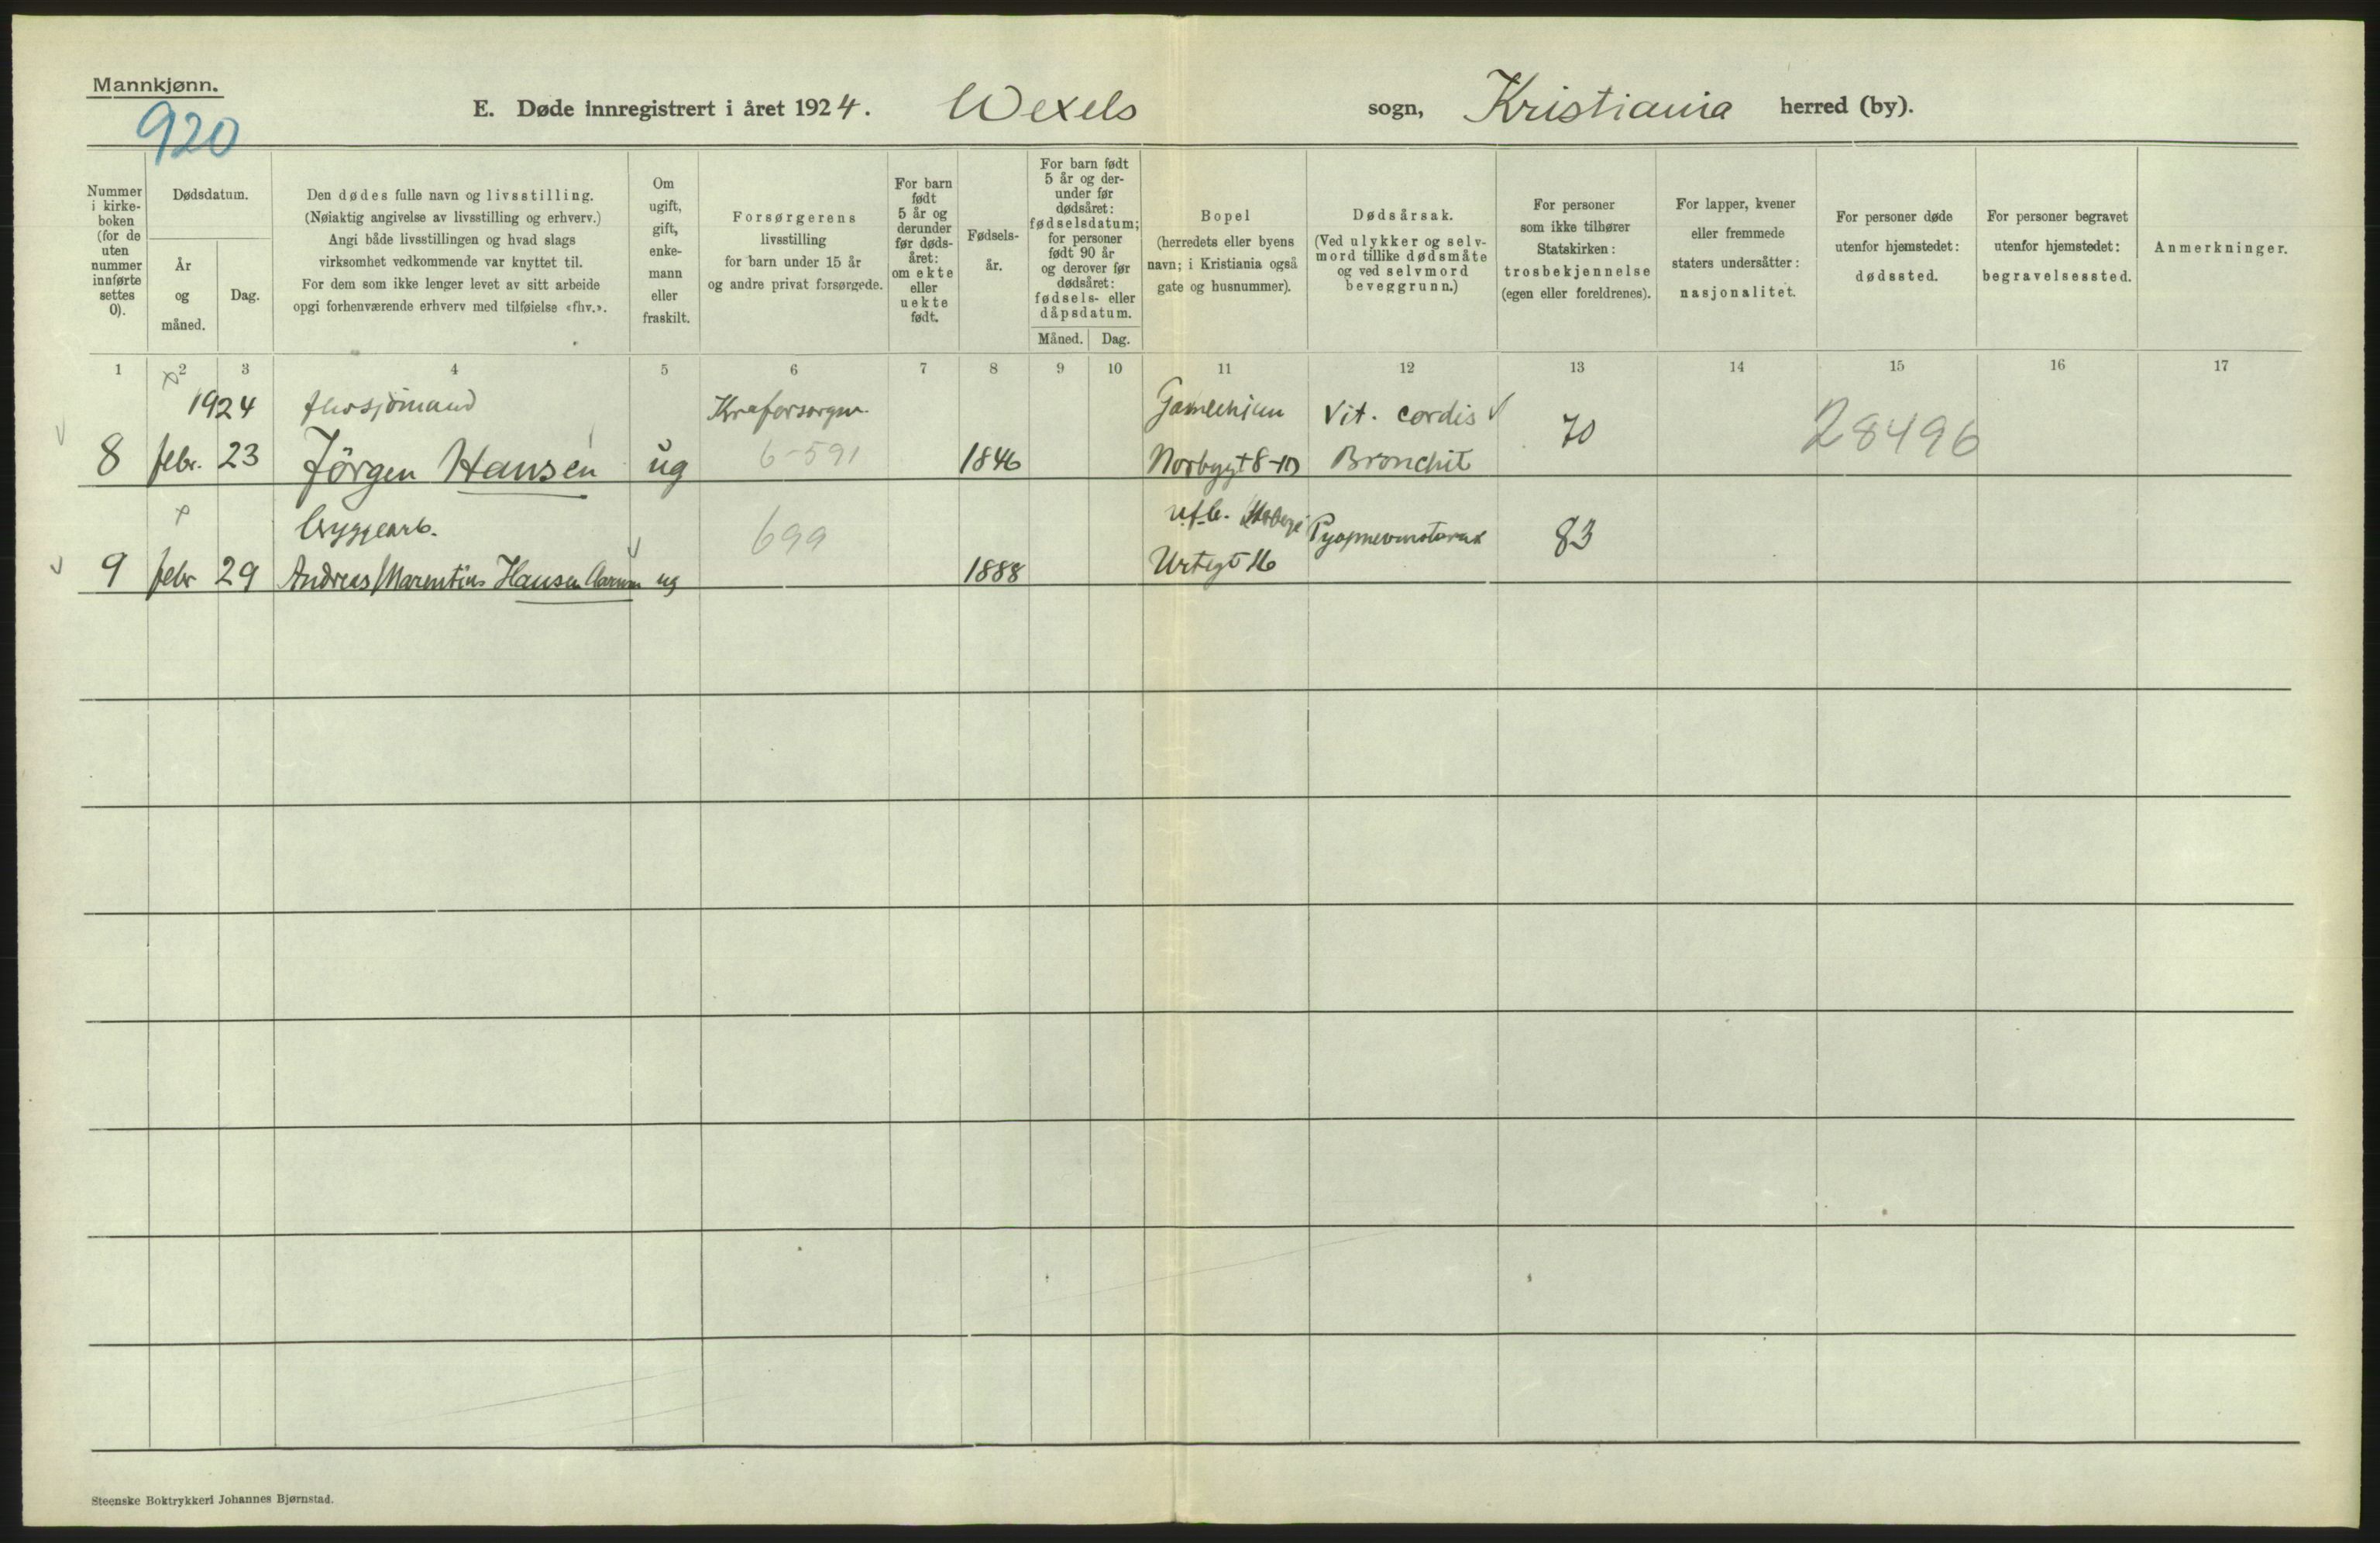 Mannkjønn.
920
E. Døde innregistrert i året 1924. Wexels sogn, Kristiania herred (by).
Nummer i kirke- boken (for de uten nummer innførte settes 0).
Dødsdatum.
År og måned.
Dag.
Den dødes fulle navn og livsstilling.
(Nøiaktig angivelse av livsstilling og erhverv.)
Angi både livsstillingen og hvad slags
virksomhet vedkommende var knyttet til.
For dem som ikke lenger levet av sitt arbeide
opgi forhenværende erhverv med tilføielse «fhv.».
Om ugift, gift, enke- mann eller fraskilt.
Forsørgerens
livsstilling
for barn under 15 år
og andre privat forsørgede.
For barn født 5 år og derunder før døds- året: om ekte eller uekte født.
Fødsels- år.
For barn født 5 år og der- under før dødsåret: fødselsdatum; for personer født 90 år og derover før dødsåret: fødsels- eller dåpsdatum.
Måned. Dag.
Bopel
(herredets eller byens
navn; i Kristiania også
gate og husnummer).
Dødsårsak.
(Ved ulykker og selv-
mord tillike dødsmåte
og ved selvmord
beveggrunn.)
For personer
som ikke tilhører
Statskirken:
trosbekjennelse
(egen eller foreldrenes).
For lapper, kvener
eller fremmede
staters undersåtter:
nasjonalitet.
For personer døde
utenfor hjemstedet:
dødssted.
For personer begravet
utenfor hjemstedet:
begravelsessted.
Anmerkninger.
1 2 3 4 5 6 7 8 9 10 11 12 13 14 15 16 17
1924 fhv sjömand Gamlehjem Vit. cordis 70 28496
8 febr. 23 Jörgen Hansen ug 6-591 1846 Norbygt 8-10 Bronchit
Byggearb. 699 83
9 febr 29 Andreas Marentius Hansen ug 1888 Urtegt 16
Steenske Boktrykkeri Johannes Bjørnstad.